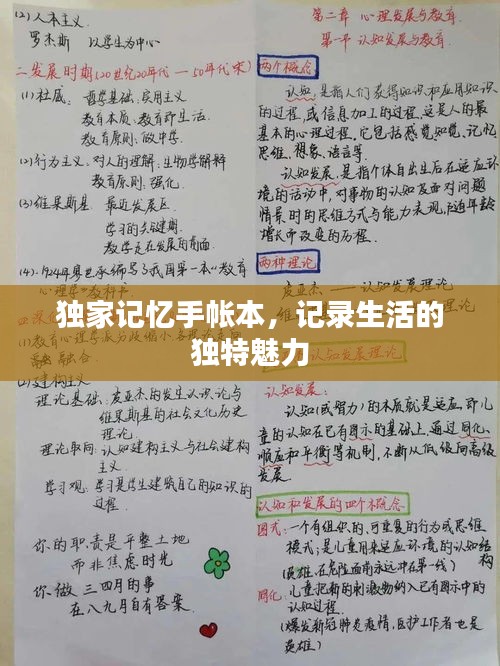 (2) 人本主义.
罗杰斯 以学生为中心
二.发展时期(20世纪20年代 — 50年代末)
(1) 杜威: 哲学基础:实用主义
教育本质:教育即生活.
教育原则:做中学.
(2) 行为主义: 对人的理解:生物学解释
教育原则:强化.
(3) 维果斯基: 最近发展区.
学习的关键期.
教学走在发展的前面.
(4). 1924年 编写了我国第一本《教育
心理学》
(2) 建构主义:
理论基础:皮亚杰的发生认识论与
维果斯基的社会文化历史
理论.
理论取向:认知建构主义与社会建构
主义.
学习观:学习是学生建筑自己的知识的
过程.
你的职责是平整土地
而非焦虑时光
你做 三四月的事
在八九月自有答案.
第二章 心理发展与教育.
第一节 认知发展与教育.
两个概念
认知,是指人们获得知识和应用知识
的过程,或信息加工的过程,这是人的最
基本的心理过程,它包括感觉知觉、记忆
思维、想象、语言等.
认知发展,是指个体自出生后在适应环
境的活动中,对事物的认知及面对问题
情景时的思维方式与能力表现,随年龄
增长而改变的历程.
两种理论
皮亚杰 — 认知发展理论
独家记忆手帐本，记录生活的
独特魅力
发展理论
认知发展:
认知(或智力)的本质就是适应,即儿
童的认知在已有图式的基础上,通过同化、
顺应和平衡等机制,不断从低级向高级
发展.
认知和发展的四个概念
图式:一个有组织的,可重复的行为或思维
模式;是儿童用来适应环境的认知结
构
(英雄,在危险面前永远冲在第一线)
同化:儿童把新的刺激物纳入已有图式中的
认知过程.
(爆发新冠肺炎疫情,医护工作者也是
英雄)